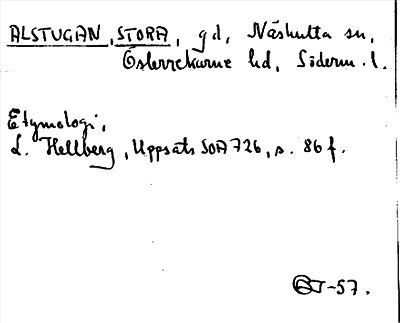 ALSTUGAN, STORA, gd, Näshulta sn,
Österrekarne hd, Söderm. l.
Etymologi,
L. Hellberg, Uppsats SOA 726, s. 86 f.
-57.